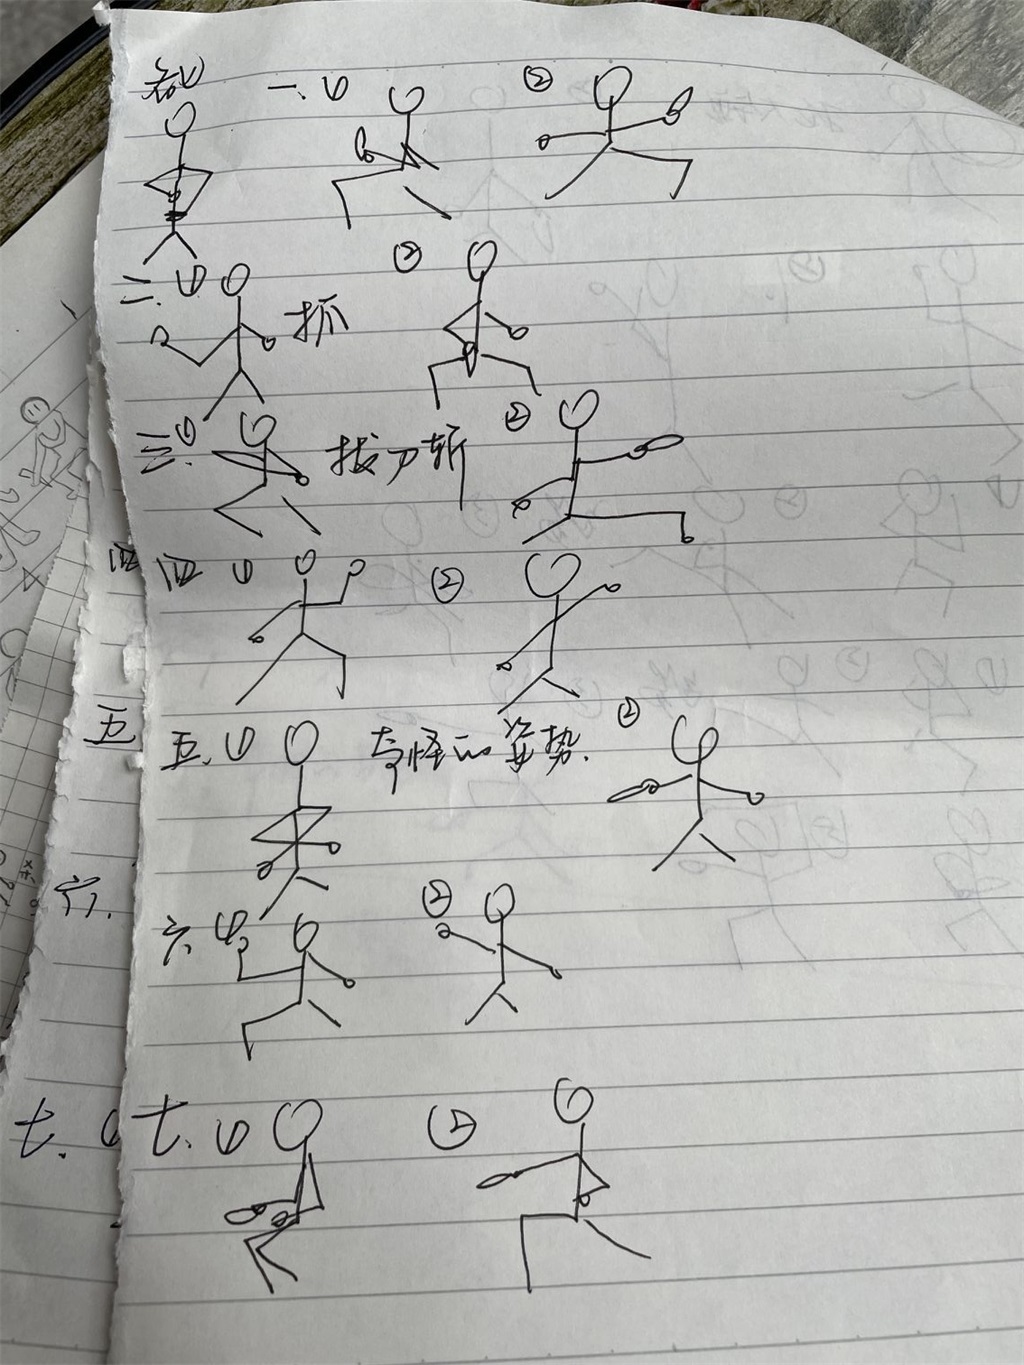 一、①
②
二、①
抓
②
三、①
拔刀斩
②
四 四 ①
②
五
五、①
奇怪的姿势.
②
六.
六、①
②
七.
七、①
②